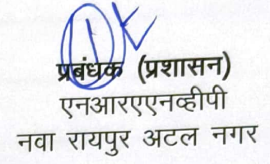 प्रबंधक (प्रशासन)
एनआरएएनव्हीपी
नवा रायपुर अटल नगर